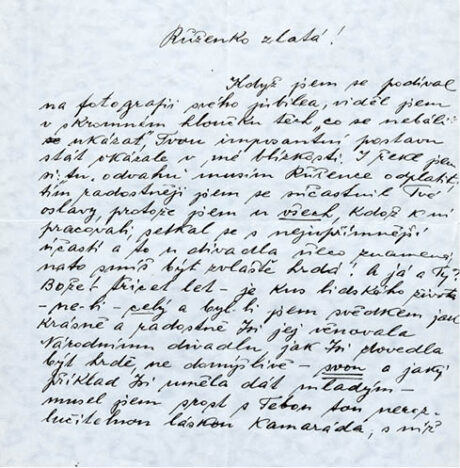 Růženko zlatá!
Když jsem se podíval
na fotografii svého jubilea, viděl jsem
v skromném hloučku těch „co se nebáli
se ukázat", Tvou imposantní postavu
stát okázale v mé blízkosti. I řekl jsem
si: tu odvahu musím Růžence odplatit.
tím radostněji jsem se súčastnil Tvé
oslavy, protože jsem u všech, kdož k ní
pracovali, setkal se s nejupřímnější
účastí a to u divadla něco znamená,
nato smíš být zvláště hrdá! A já a Ty?
Bože! třicet let – je kus lidského života
– ne-li – celý a byl-li jsem svědkem jak
krásně a radostně Jsi jej věnovala
Národnímu divadlu, jak Jsi dovedla
být hrdě ne domýšlivě – svou a jaký
příklad Jsi uměla dát mladým –
musel jsem srůst s Tebou tou neroz-
lučitelnou láskou kamaráda, s níž